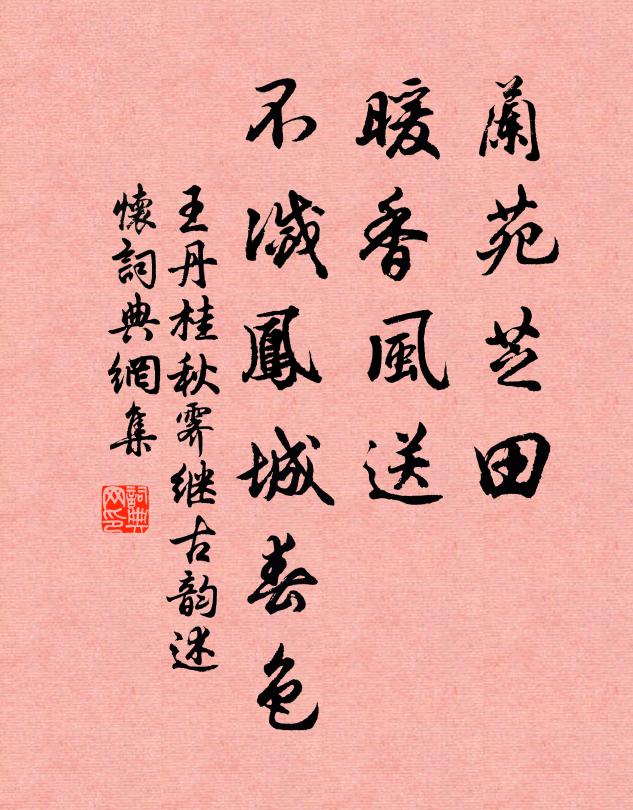 蘭苑芝田
暖香風送
不減鳳城春色
王丹桂秋霽继古韵述
懷詞典網集
詞典
网印